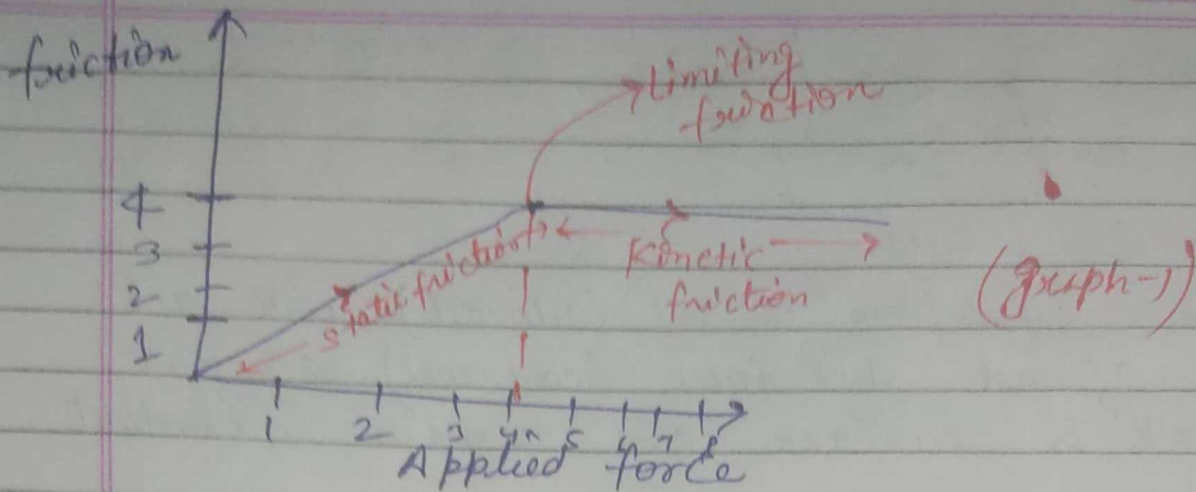 friction
Limiting
friction
4
3
2
1
static friction
Kinetic
friction
(graph-1)
1 2 3 4 5 6 7 8
Applied force